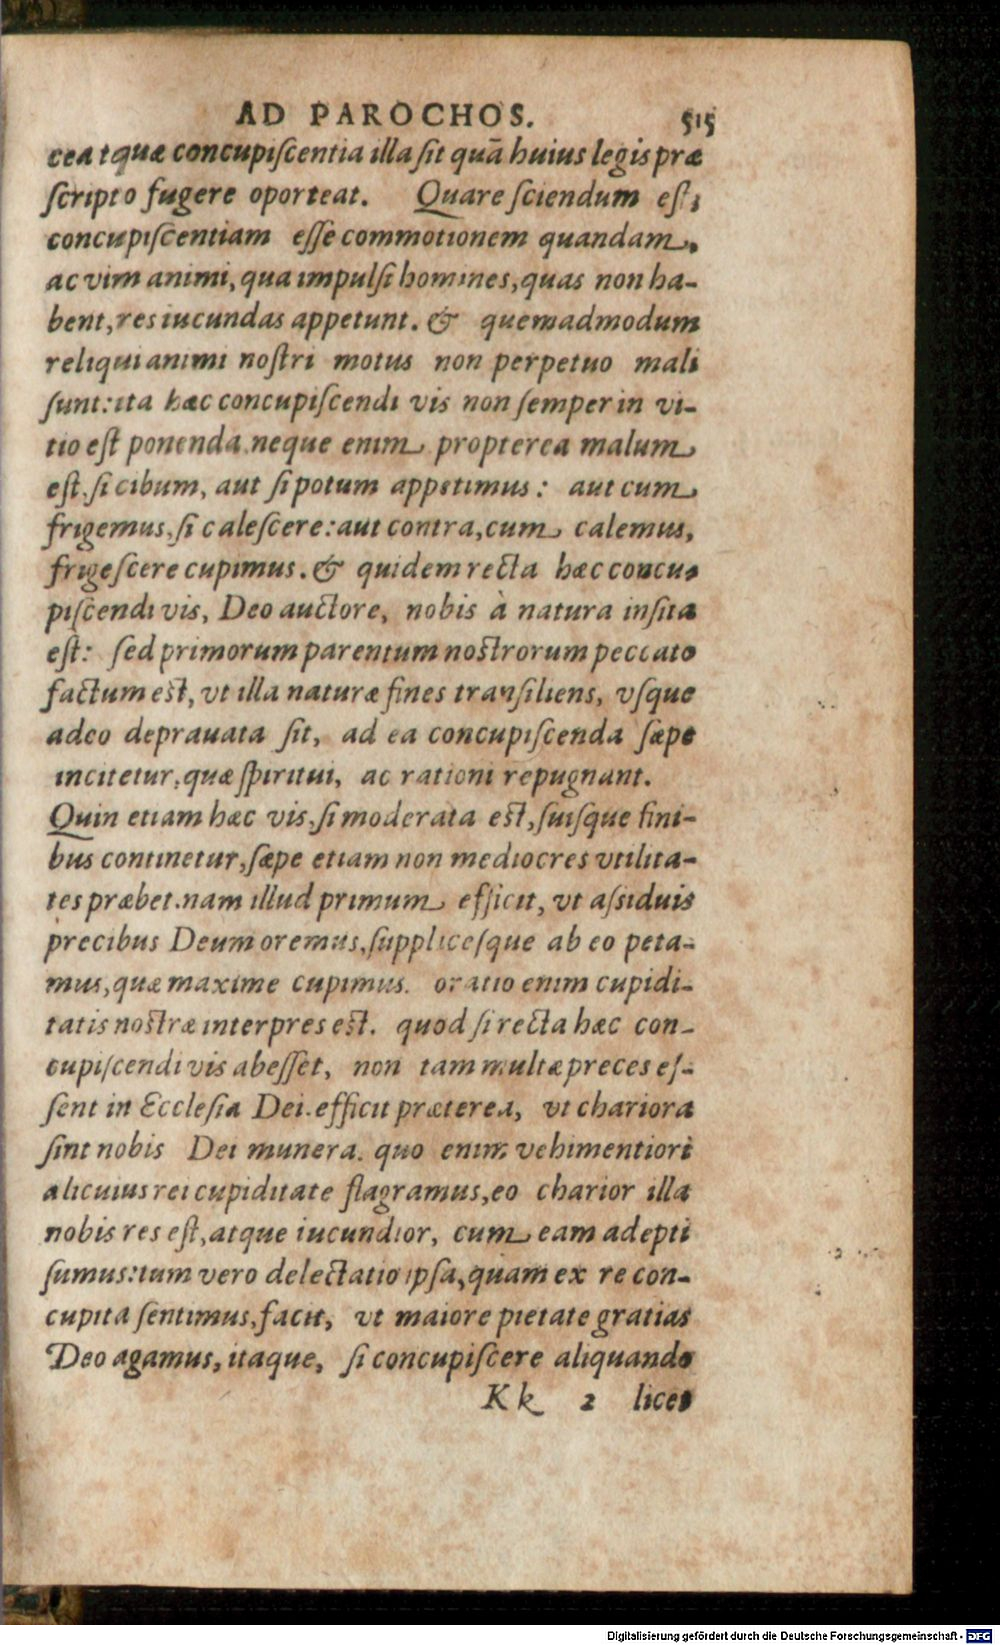 AD PAROCHOS. 515
ceat quæ concupiſcentia illa ſit quā huius legis præ
ſcripto fugere oporteat. Quare ſciendum eſt,
concupiſcentiam eſſe commotionem quandam,
ac vim animi, qua impulſi homines, quas non ha-
bent, res iucundas appetunt. & quemadmodum
reliqui animi noſtri motus non perpetuo mali
ſunt: ita hæc concupiſcendi vis non ſemper in vi-
tio eſt ponenda. neque enim propterea malum
eſt, ſi cibum, aut ſi potum appetimus: aut cum
frigemus, ſi caleſcere: aut contra, cum calemus,
frigeſcere cupimus. & quidem recta hæc concu-
piſcendi vis, Deo auctore, nobis à natura inſita
eſt: ſed primorum parentum noſtrorum peccato
factum eſt, vt illa naturæ fines tranſiliens, vſque
adeo deprauata ſit, ad ea concupiſcenda ſæpe
incitetur, quæ ſpiritui, ac rationi repugnant.
Quin etiam hæc vis, ſi moderata eſt, ſuiſque fini-
bus continetur, ſæpe etiam non mediocres vtilita-
tes præbet. nam illud primum efficit, vt aſsiduis
precibus Deum oremus, ſuppliceſque ab eo peta-
mus, quæ maxime cupimus. oratio enim cupidi-
tatis noſtræ interpres eſt. quod ſi recta hæc con-
cupiſcendi vis abeſſet, non tam multæ preces eſ-
ſent in Eccleſia Dei. efficit præterea, vt chariora
ſint nobis Dei munera. quo enim vehimentiori
alicuius rei cupiditate flagramus, eo charior illa
nobis res eſt, atque iucundior, cum eam adepti
ſumus: tum vero delectatio ipſa, quam ex re con-
cupita ſentimus, facit, vt maiore pietate gratias
Deo agamus, itaque, ſi concupiſcere aliquando
Kk 2 licea
Digitalisierung gefördert durch die Deutsche Forschungsgemeinschaft - DFG